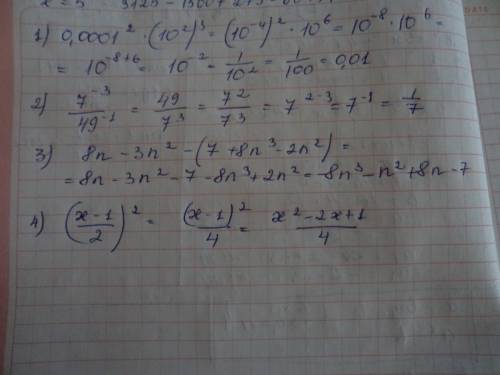 x = 5
1) 0,0001² · (10²)³ = (10⁻⁴)² · 10⁶ = 10⁻⁸ · 10⁶ =
= 10⁻⁸⁺⁶ = 10⁻² = 1/10² = 1/100 = 0,01
2) 7⁻³/49⁻¹ = 49/7³ = 7²/7³ = 7²⁻³ = 7⁻¹ = 1/7
3) 8n - 3n² - (7 + 8n³ - 2n²) =
= 8n - 3n² - 7 - 8n³ + 2n² = -8n³ - n² + 8n - 7
4) ((x-1)/2)² = (x-1)²/4 = (x² - 2x + 1)/4